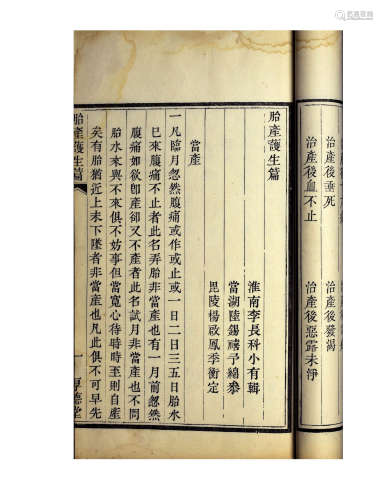 治產後垂死　治產後發渴
治產後血不止　治產後惡露未淨
胎產護生篇
淮南李長科小有輯
當湖陸錫予綿參
毘陵楊啟鳳季衡定
當產
一凡臨月忽然腹痛或作或止或一日二日三五日胎水
已來腹痛不止者此名弄胎非當產也有一月前忽然
腹痛如欲卽產卻又不產者此名試月非當產也不問
胎水來與不來俱不妨事但當寬心待時時至則自產
矣有胎猶近上未下墜者非當產也凡此俱不可早先
胎產護生篇　一　厚德堂